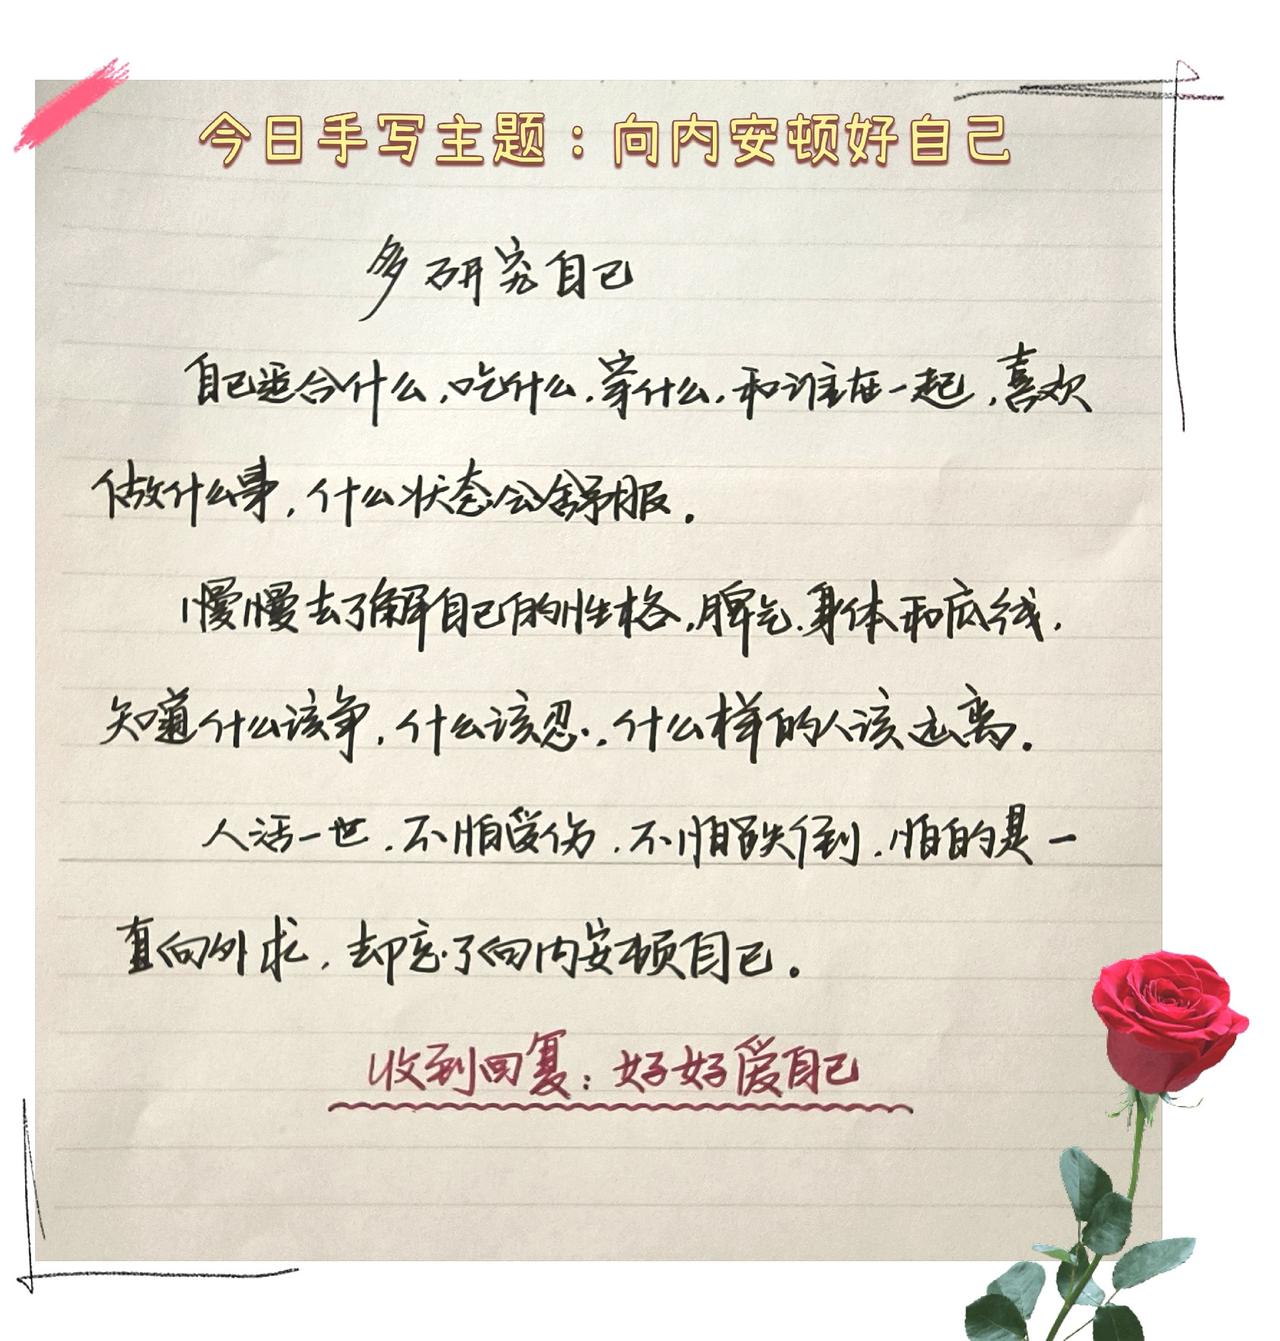 今日手写主题：向内安顿好自己
多研究自己
自己适合什么,吃什么,穿什么,和谁在一起,喜欢
做什么事,什么状态会舒服.
慢慢去了解自己的性格,脾气.身体和底线.
知道什么该争,什么该忍.,什么样的人该远离.
人活一世.不怕受伤.不怕跌倒.怕的是一
直向外求.却忘了向内安顿自己.
收到回复:好好爱自己